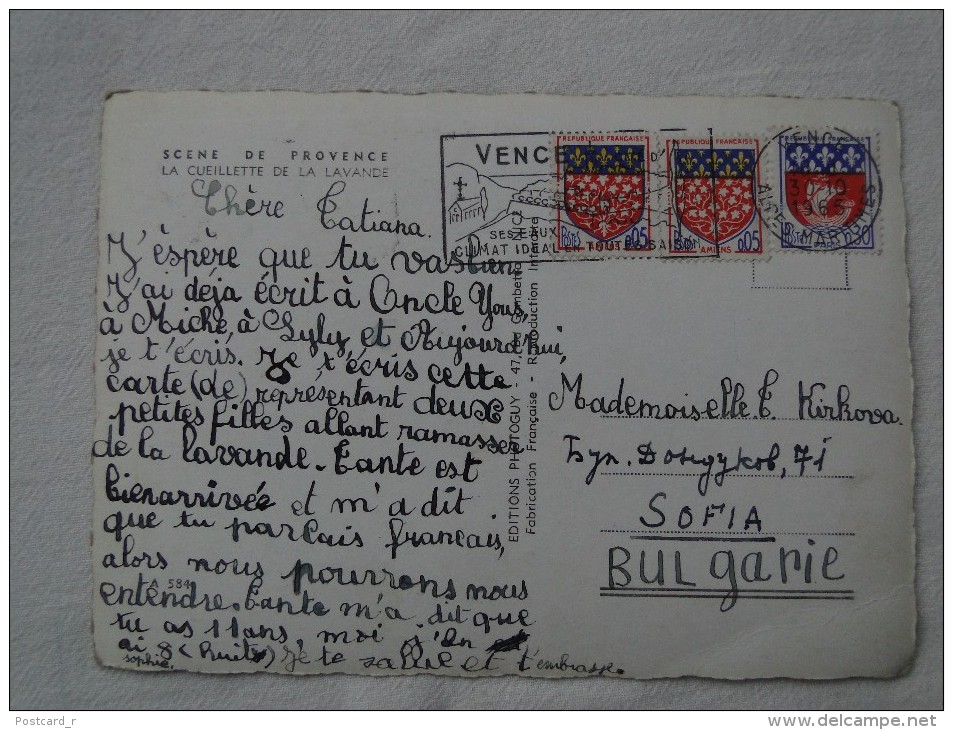 SCENE DE PROVENCE
LA CUEILLETTE DE LA LAVANDE
Chère Tatiana.
J'espère que tu vas bien,
J'ai déja écrit à Oncle Yous,
à Miche, à Lyly, et Aujourd'hui,
je t'écris. Je t'écris cette
carte (de) représentant deux
petites filles allant ramasser
de la lavande. Tante est
bien arrivée et m'a dit
que tu parlais francais,
alors nous pourrons nous
entendre. Tante m'a dit que
tu as 11 ans, moi j'en
ai 8 (huit) Je te salue et t'embrasse.
sophie.
A 584
EDITIONS PHOTOGUY - 47, rue Gambetta
Fabrication Française - Reproduction Interdite
VENCE
SES EAUX
CLIMAT IDEAL EN TOUTE SAISON
REPUBLIQUE FRANÇAISE
POSTES 0,05
REPUBLIQUE FRANÇAISE
0,05
AMIENS
VENCE
1965
ALPES MARITIMES
0,30
Mademoiselle T. Kirkova.
Бул. Дондуков, 71
SOFIA
BULgarie
Postcard_r
delcampe.net